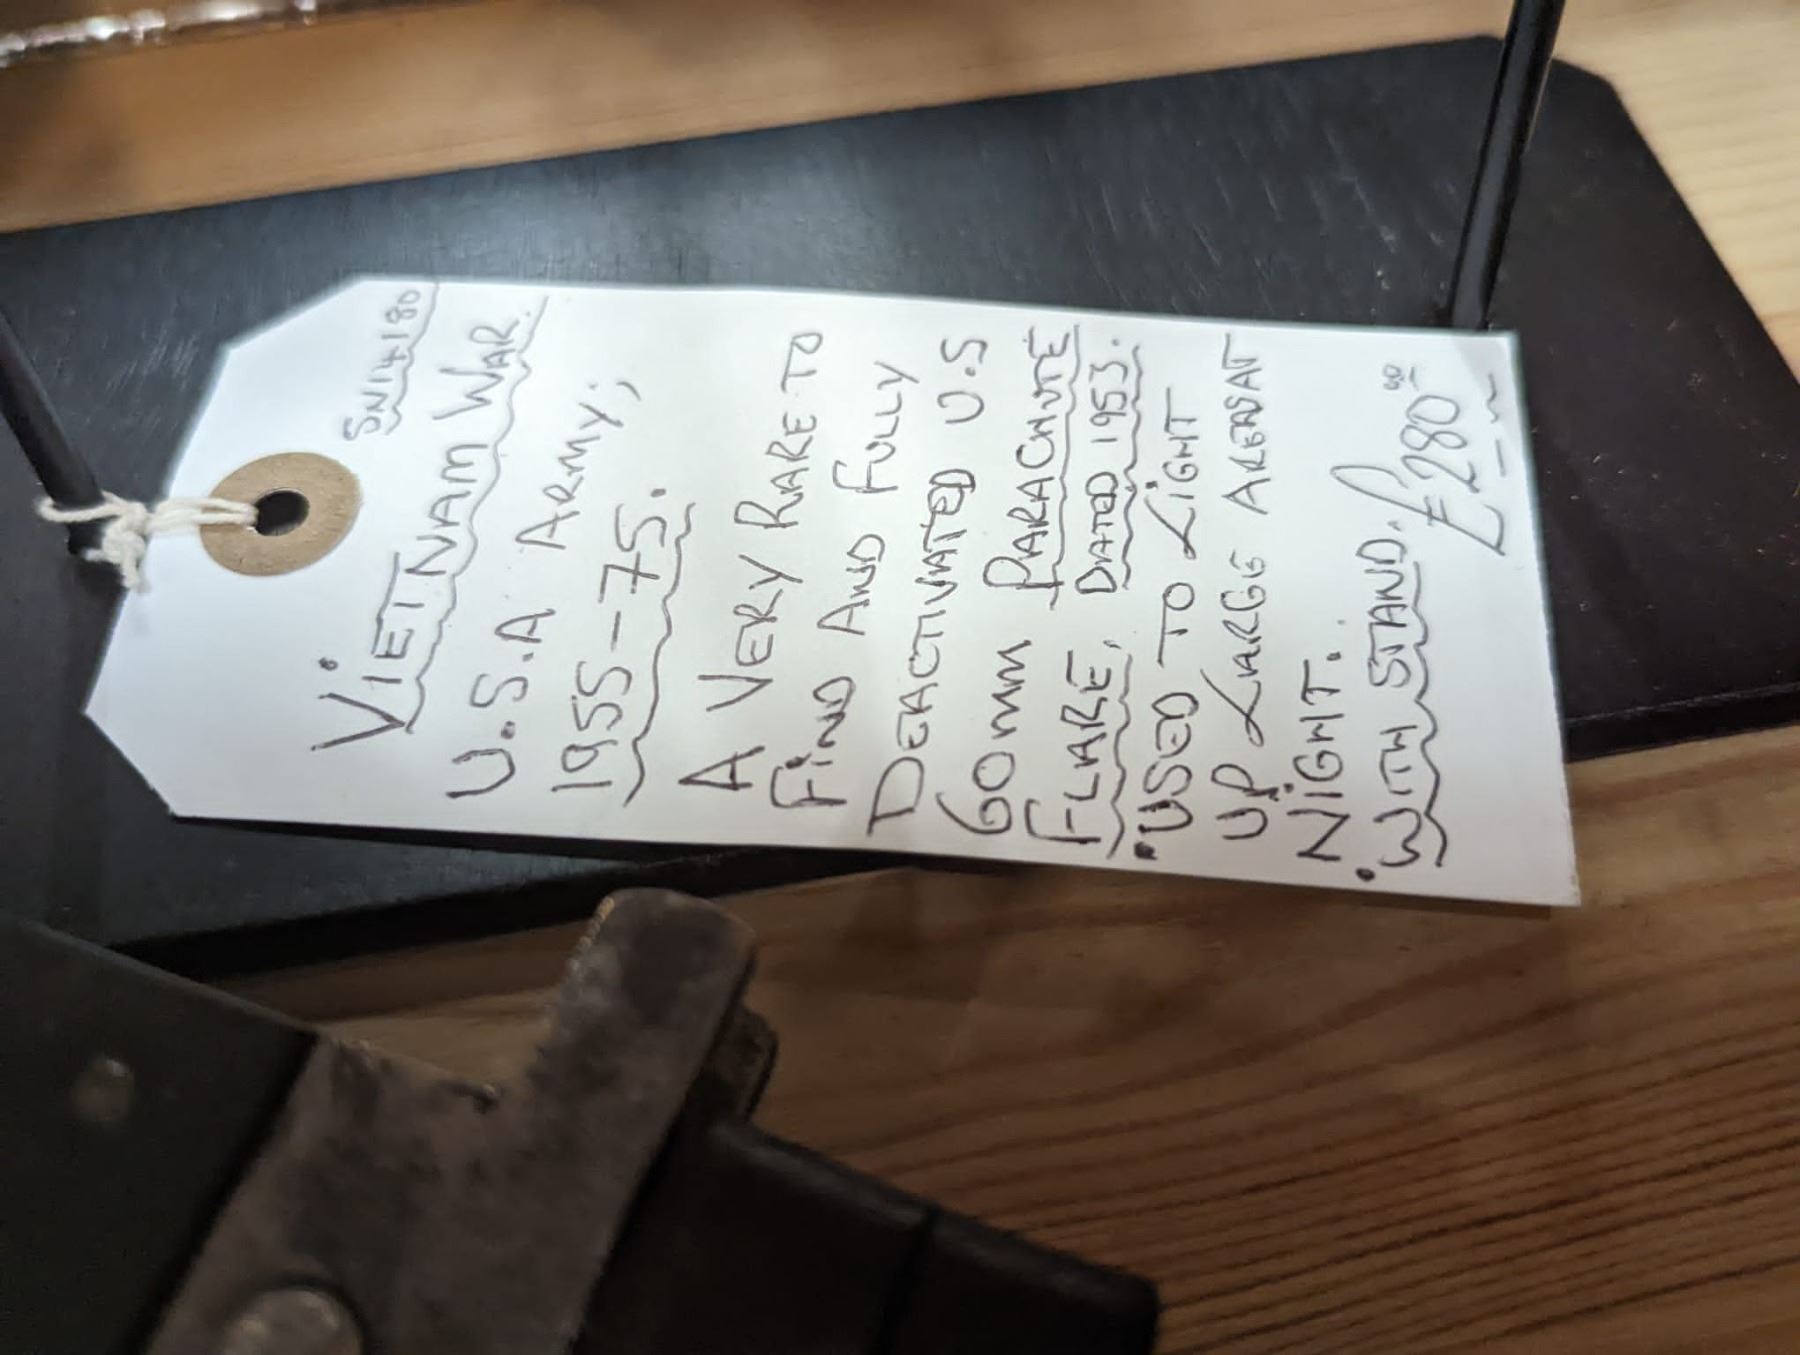 SN14180
VIETNAM WAR.
U.S.A ARMY;
1955-75.
A VERY RARE TO
FIND AND FULLY
DEACTIVATED U.S
60MM PARACHUTE
FLARE, DATED 1953.
• USED TO LIGHT
UP LARGE AREAS AT
NIGHT.
• WITH STAND.
£280 00